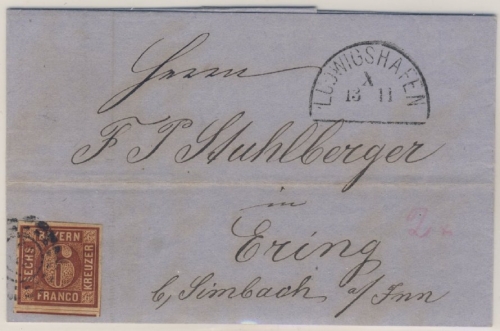 Herrn
LUDWIGSHAFEN
A
13 11
F P Stuhlberger
in
Ering
b, Simbach a/Inn
BAYERN
SECHS
6
KREUZER
FRANCO